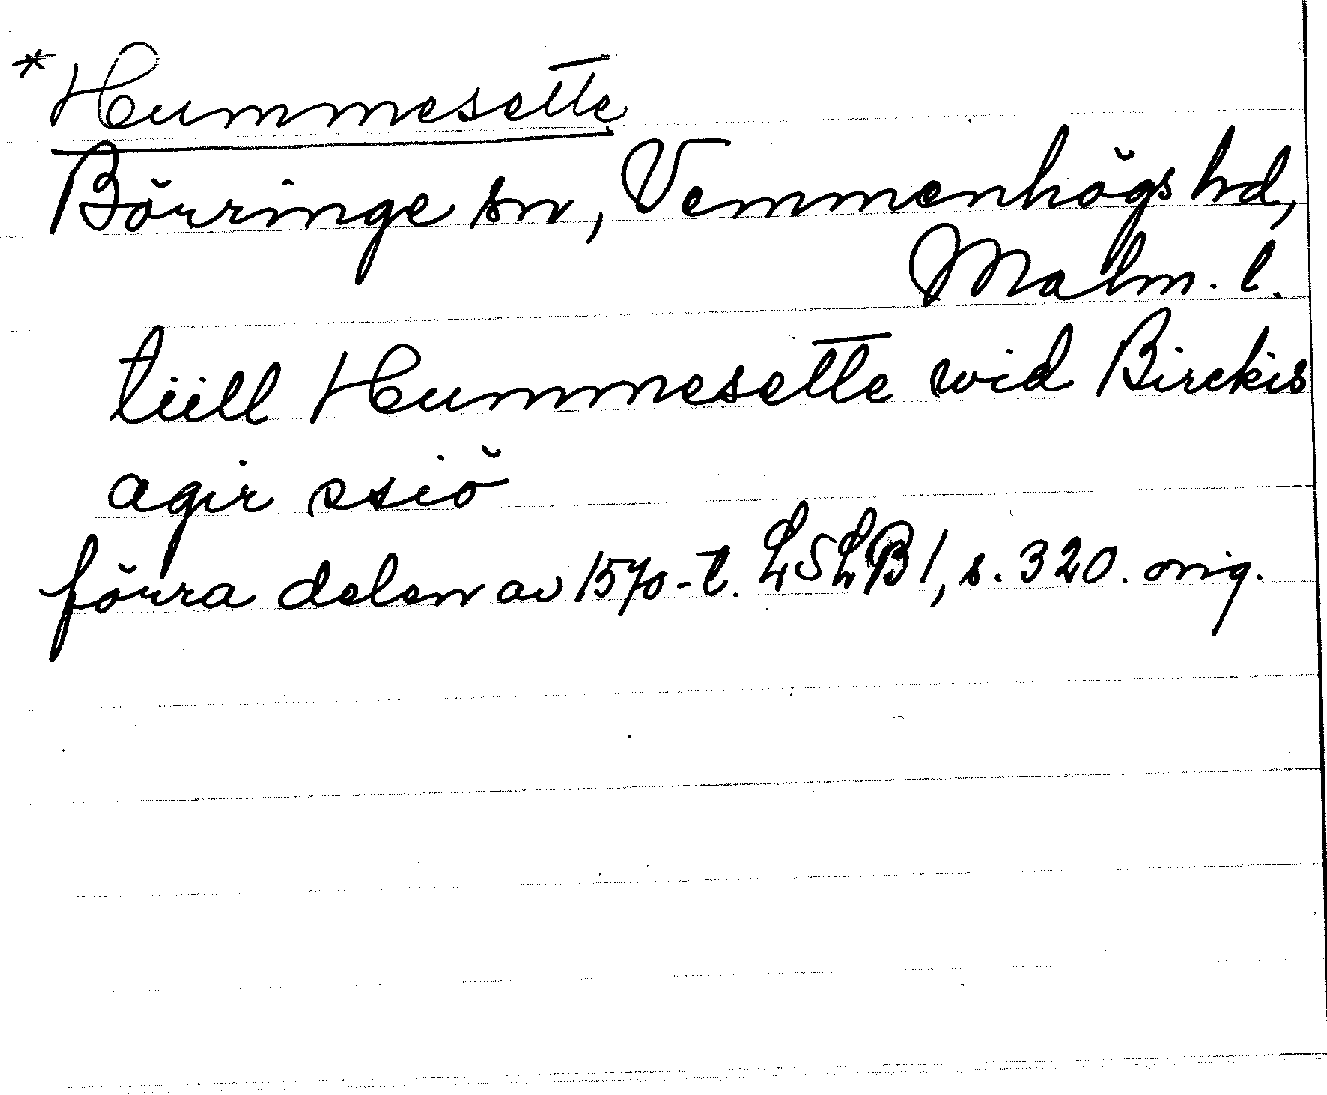 *Hummesette
Börringe sn, Vemmenhögs hd,
Malm. l.
tiill Hummesette wid Birckis
agir ssiö
förra delen av 1570-t. LSLB 1, s. 320. orig.